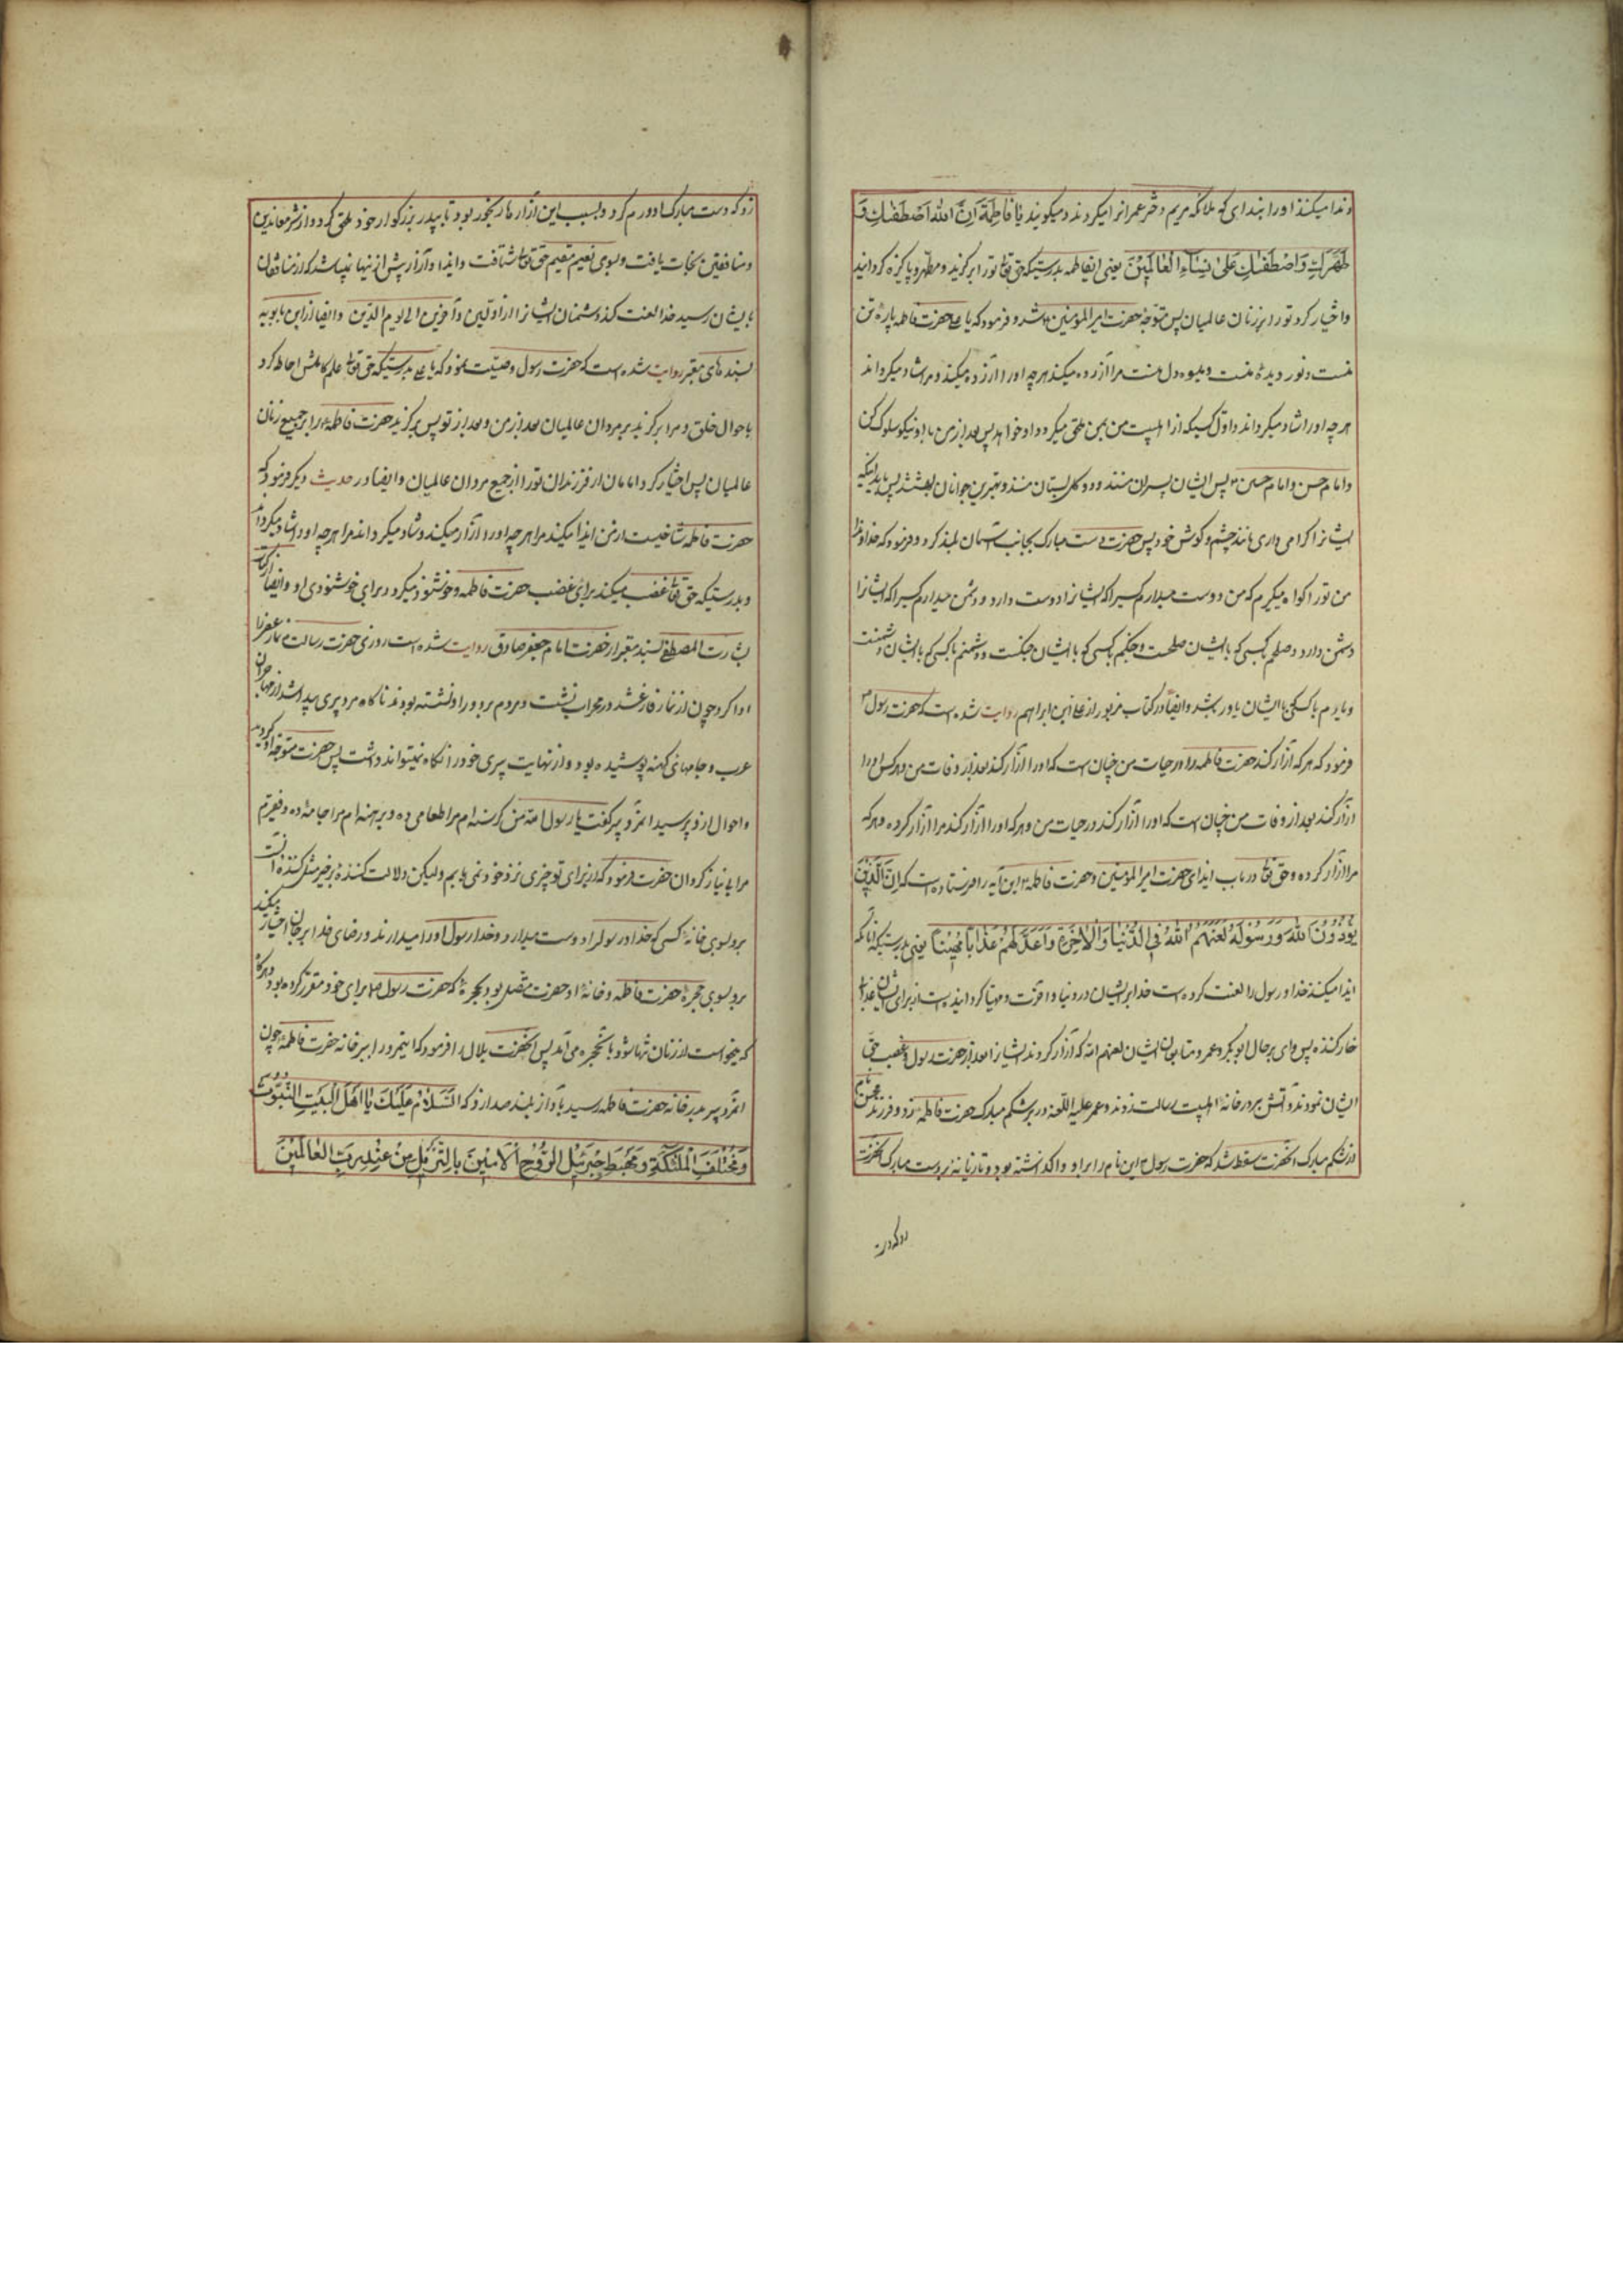 و ندا میکنند او را بندای که ملائکه مریم دختر عمرانرا میکردند و میکویند یا فاطِمَةُ اِنَّ اللهَ اصْطَفٰكِ وَ
طَهَّرَكِ وَاصْطَفٰكِ عَلیٰ نِسٰآءِ الْعٰالَمِيْنَ یعنی ایفاطمه بدرستیکه حق تعا تو را برکزید و مطهّر و پاکیزه کردانید
و اختیار کرد تو را بر زنان عالمیان پس متوجّه حضرت امیر المؤمنین شد و فرمود که یا علی حضرت فاطمه پاره تن
منست و نور دیده منست و میوه دل منست مرا آزرده میکند هر چه او را آزرده میکند و مرا شاد میکرداند
هر چه او را شاد میکرداند و اول کسیکه از اهلبیت من بمن ملحق میکردد او خواهد پس بعد از من با او نیکو سلوک کن
و امام حسن و امام حسین پس ایشان پسران منند و دو کل بستان منند و بهترین جوانان بهشتند پس باید اینکه
ایشانرا کرامی داری مانند چشم و کوش خود پس حضرت دست مبارک بجانب آسمان بلند کرد و فرمود که خداوندا
من تو را کواه میکیرم که من دوست میدارم کسیرا که ایشانرا دوست دارد و دشمن میدارم کسیرا که ایشانرا
دشمن دارد و صلحم بکسی که با ایشان صلحست و جنکم بکسی که با ایشان جنکست و دشمنم با کسی که با ایشان دشمنست
و یاورم با کسی که با ایشان یاور باشد و ایضاً در کتاب مزبور از علی ابن ابراهیم روایت شده است که حضرت رسول
فرمود که هر که آزار کند حضرت فاطمه را در حیات من چنان است که او را آزار کند بعد از وفات من و هر کس او را
آزار کند بعد از وفات من چنان است که او را آزار کند در حیات من و هر که او را آزار کند مرا آزار کرده و هر که
مرا آزار کرده و حق تعا در باب ایذای حضرت امیر المؤمنین و حضرت فاطمه این آیه را فرستاده است که اِنَّ الَّذِيْنَ
يُؤْذُوْنَ اللهَ وَرَسُوْلَهُ لَعَنَهُمُ اللهُ فِي الدُّنْيٰا وَالْاٰخِرَةِ وَاَعَدَّ لَهُمْ عَذٰاباً مُهِيْناً یعنی بدرستیکه آنانکه
ایذا میکنند خدا و رسول را لعنت کرده است خدا بر ایشان در دنیا و آخرت و مهیا کردانیده است از برای ایشان عذاب
خار کننده پس وای بر حال ابو بکر و عمر و متابعان ایشان لعنهم الله که آزار کردند ایشانرا بعد از حضرت رسول و غصب حق
ایشان نمودند و آتش بر در خانه اهلبیت رسالت زدند و عمر علیه اللعنه در بر شکم مبارک حضرت فاطمه زد و فرزند محسن نام
از شکم مبارک آنحضرت سقط شد که حضرت رسول این نام را برا او واکذاشته بود و تازیانه بر دست مبارک آنحضرت
زد که دست
زد که دست مبارک او ورم کرد و بسبب این آزارها رنجور بود تا بپدر بزرکوار خود ملحق کردد و از شر معاندین
و منافقین نجات یافت و بسوی نعیم مقیم حق تعا شتافت و ایذا و آزار پیش از نیها نمیباشد که از منافقان
بایشان رسید خدا لعنت کند دشمنان ایشانرا از اوّلین و آخرین الی یوم الدّین و ایضا از ابن بابویه
بسندهای معتبر روایت شده است که حضرت رسول وصیّت نمود که یا علی بدرستیکه حق تعا علم کاملش احاطه کرد
باحوال خلق و مرا برکزید بر مردان عالمیان بعد از من و بعد از تو پس برکزید حضرت فاطمه را بر جمیع زنان
عالمیان پس اختیار کرد امامان از فرزندان تو را از جمیع مردان عالمیان و ایضا در حدیث دیکر فرمود که
حضرت فاطمه شاخیست از من ایذا میکند مرا هر چه او را آزار میکند و شاد میکرداند مرا هر چه او را شاد میکرداند
و بدرستیکه حق تعا غضب میکند برای غضب حضرت فاطمه و خوشنود میکردد برای خوشنودی او و ایضا از کتاب
بشارت المصطفی بسند معتبر از حضرت امام جعفر صادق روایت شده است روزی حضرت رسالت نماز عصر را
ادا کرد چون از نماز فارغ شد در محراب نشست و مردم بر دور او نشسته بودند ناکاه مرد پیری پیدا شد از مهاجران
عرب و جامهای کهنه پوشیده بود و از نهایت پیری خود را نکاه نمیتواند داشت پس حضرت متوجّه او کردید
و احوال از و پرسید آنمرد پیر کفت یا رسول الله من کرسنه ام مرا طعامی ده و برهنه ام مرا جامهٔ ده و فقیرم
مرا بی نیاز کردان حضرت فرمود که از برای تو چیزی نزد خود نمی یابم ولیکن دلالت کنندهٔ بر خیر مثل کننده آنست
برو بسوی خانهٔ کسی که خدا و رسولرا دوست میدارد و خدا و رسول او را میدارند و رضای خدا بر جان اختیار میکند
برو بسوی حجرهٔ حضرت فاطمه و خانهٔ او حضرت متصل بود بحجرهٔ که حضرت رسول برای خود مقرّر کرده بود و هر کاه
که میخواست از زنان تنها شود با نحجره می آمد پس آنحضرت بلال را فرمود که اینمرد را ببر خانه حضرت فاطمه چون
آنمرد پیر بدر خانه حضرت فاطمه رسید بآواز بلند صدا زد که اَلسَّلٰامُ عَلَيْكَ يٰا اَهْلَ الْبَيْتِ النُّبُوَّتِ
وَمُخْتَلَفَ الْمَلٰئِكَةِ وَمَهْبَطِ جَبْرَئِيْلِ الرُّوْحِ الْاَمِيْنَ بِالتَّنْزِيْلِ مِنْ عِنْدِ رَبِّ الْعٰالَمِيْنَ